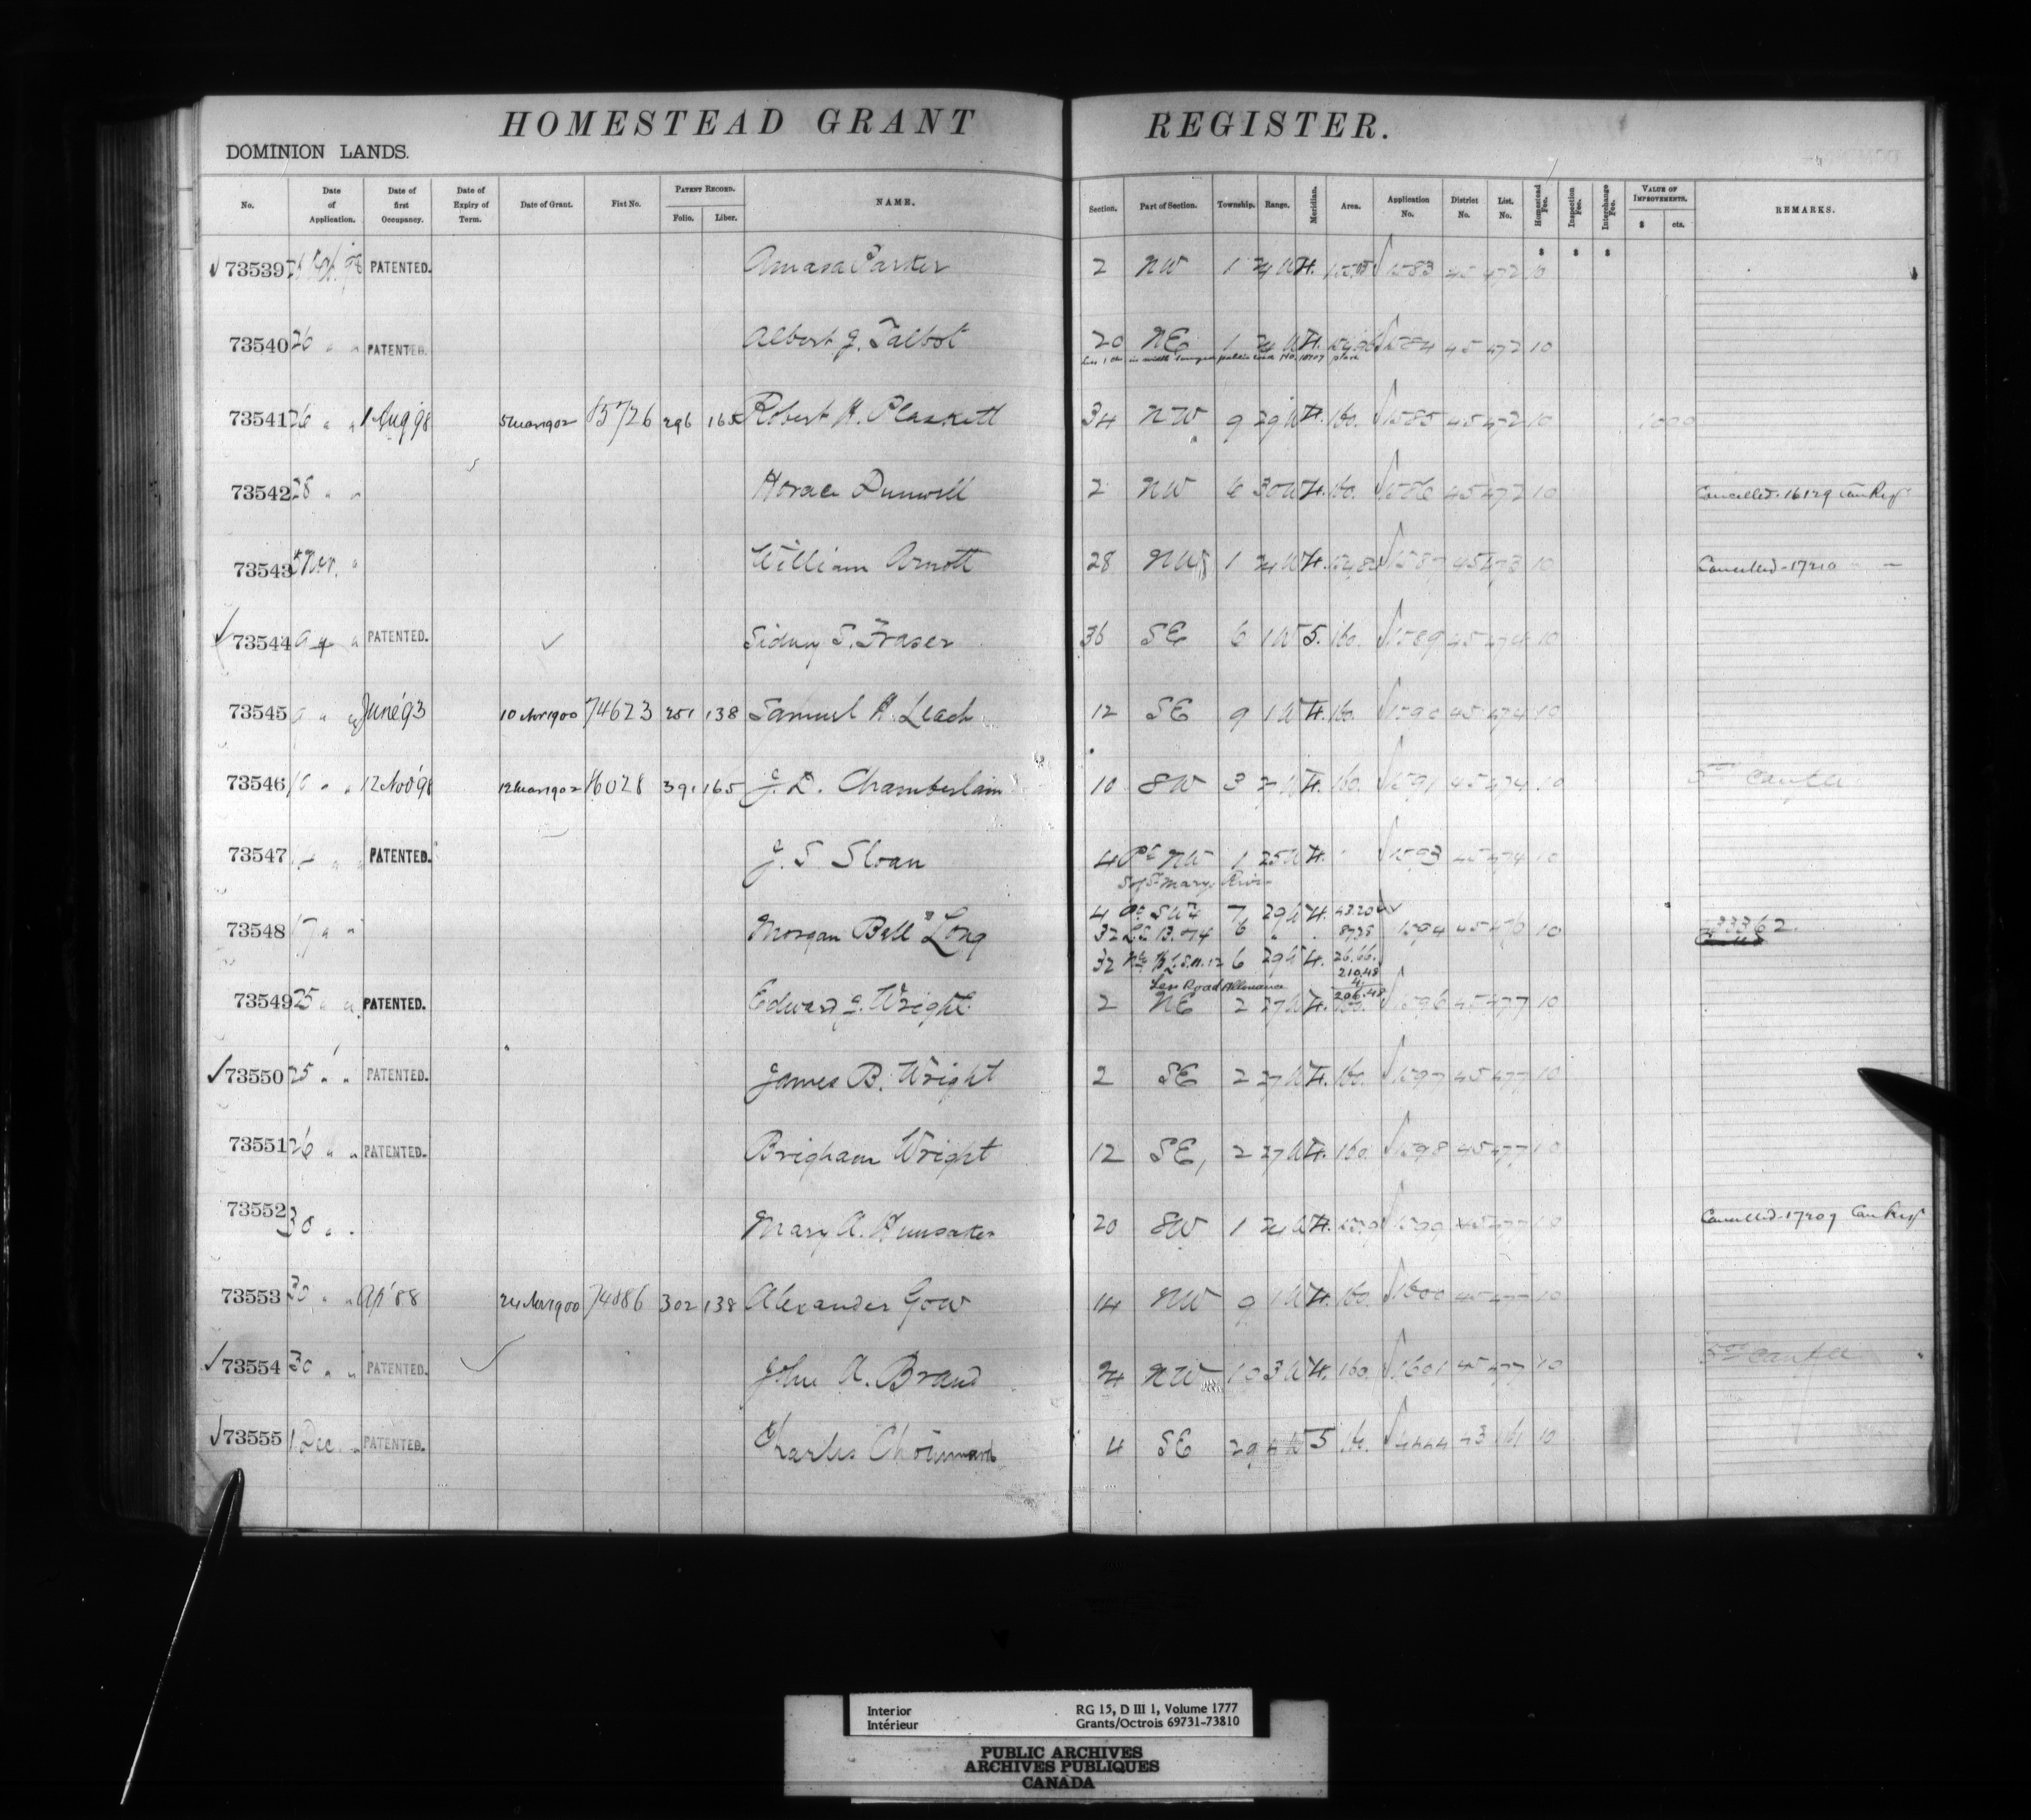 HOMESTEAD GRANT REGISTER.
DOMINION LANDS.
No. Date of Application. Date of first Occupancy. Date of Expiry of Term. Date of Grant. Fiat No. PATENT RECORD. Folio. Liber. NAME. Section. Part of Section. Township. Range. Meridian. Area. Application No. District No. List. No. Homestead Fee. Inspection Fee. Interchange Fee. VALUE OF IMPROVEMENTS. $ cts. REMARKS.
$ $ $
73539 PATENTED. Amasa Parker 2 NW 1 24 W 4. 1583 45 472 10
73540 26 " " PATENTED. Albert J. Talbot 20 NE 1 24 W 4. 1584 45 472 10
73541 26 " " 1 Aug 98 5 Mar 1902 296 165 Robert H. Plaskett 34 NW 9 29 W 4. 160. 1585 45 472 10 1000
73542 28 " " Horace Dunwell 2 NW 6 30 W 4. 160. 1586 45 472 10 Cancelled. 16129 Can Regr
73543 Nov. " William Arnott 28 NW 1 24 W 4. 1587 45 473 10 Cancelled. 17210 " —
73544 9 " " PATENTED. Sidney S. Fraser 36 SE 6 1 W 5. 160. 1589 45 474 10
73545 9 " " June 93 10 Apr 1900 74623 251 138 Samuel H. Leach 12 SE 9 1 W 4. 160. 1590 45 474 10
73546 10 " " 12 Nov 98 12 Mar 1902 391 165 J. D. Chamberlain 10 SW 3 2 W 4. 160. 1591 45 474 10
73547 " " PATENTED. J. S. Sloan 4 Pt NW 1 25 W 4. 1593 45 474 10
S of St Marys River
73548 17 " " Morgan Bell Long 4 Pt SW 7 29 W 4. 43.20 1594 45 476 10 33362.
32 6 " " 87.38
32 6 29 W 4. 26.66.
210.48
Less Road Allowance 4.
206.48
73549 25 " " PATENTED. Edward J. Wright 2 NE 2 27 W 4. 160. 1596 45 477 10
73550 25 " " PATENTED. James B. Wright 2 SE 2 27 W 4. 160. 1597 45 477 10
73551 26 " " PATENTED. Brigham Wright 12 SE, 2 27 W 4. 160. 1598 45 477 10
73552 30 " " Mary A. Hunsaker 20 SW 1 24 W 4. 1599 45 477 10 Cancelled. 17209 Can Regr
73553 30 " " Ap' 88 24 Apr 1900 302 138 Alexander Gow 14 NW 9 1 W 4. 160. 1600 45 477 10
73554 30 " " PATENTED. John A. Brand 24 NW 10 3 W 4. 160. 1601 45 477 10
73555 1 Dec. " PATENTED. Charles Choinard 4 SE 29 W 5 160. 4444 43 161 10
Interior RG 15, D III 1, Volume 1777
Intérieur Grants/Octrois 69731-73810
PUBLIC ARCHIVES
ARCHIVES PUBLIQUES
CANADA